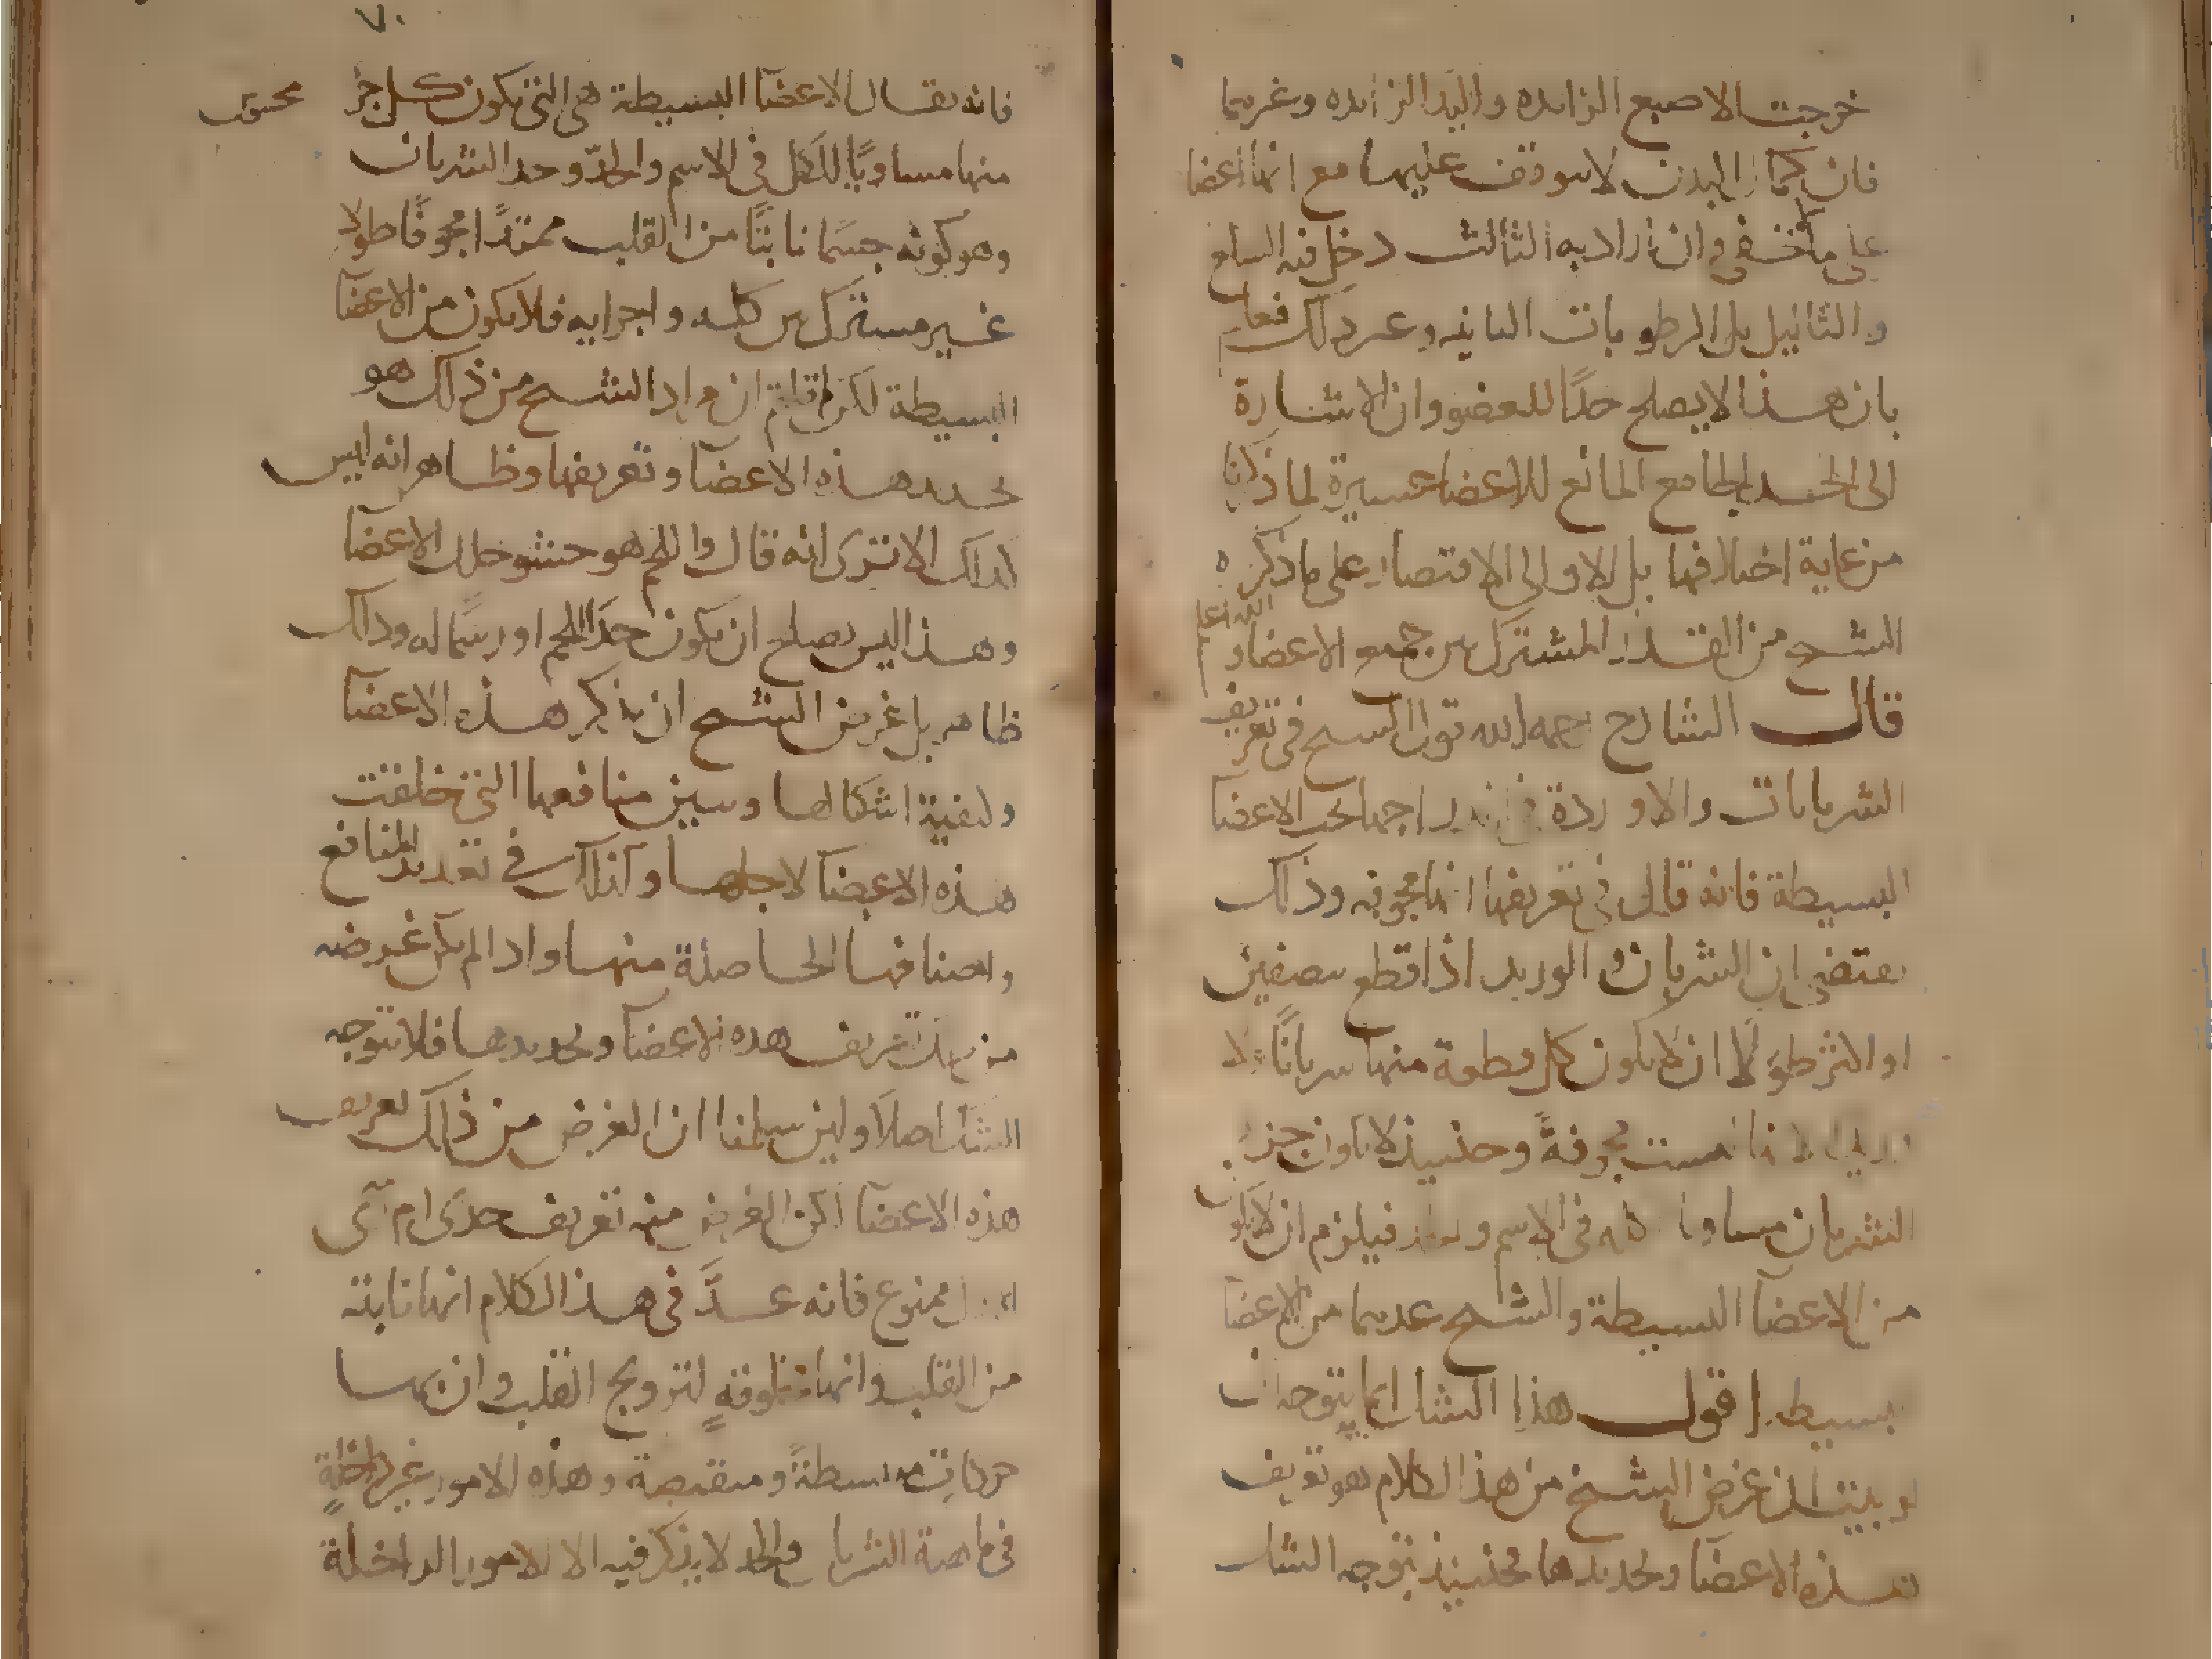 خرجت الاصبع الزايده واليد الزايده وغريما
فان كمال البدن لا يتوقف عليها مع انها اعضا
على ما لا يخفى وان اراد به الثالث دخل فيه السلع
والثاليل بل الرطوبات الثانيه وغير ذلك فعلم
بان هذا لا يصلح حدًا للعضو وان الاشارة
الى الحد الجامع المانع للاعضا عسيرة لما ذكرنا
من غاية اختلافها بل الاولى الاقتصار على ما ذكره
الشيخ من القدر المشترك بين جميع الاعضا والله اعلم
قال الشارح رحمه الله قول الشيخ في تعريف
الشريانات والاوردة اجمالى الاعضا
البسيطة فانه قال في تعريفها انها مجوفه وذلك
يقتضي ان الشريان والوريد اذا قطع بنصفين
او اكثر طولًا ان لا يكون كل قطعة منها شريانًا ولا
لانها ليست مجوفةً وحينيذ لا يكون جزء
الشريان مساويا لكله في الاسم والحد فيلزم ان لا يكون
من الاعضا البسيطة والشيخ عدهما من الاعضا
البسيطه اقول هذا الشك انما يتوجه ان
لو بينت ان غرض الشيخ من هذا الكلام هو تعريف
هذه الاعضا وتحديدها فحينيذ يتوجه الشك
٧٠
فانه يقال الاعضا البسيطة هى التى يكون كل جزء محسوس
منها مساويًا للكل فى الاسم والحدّ وحد الشريان
وهو كونه جسمًا نابتًا من القلب ممتدًا مجوفًا طولا
غير مشترك بين كله واجزايه فلا يكون من الاعضا
البسيطة لكن لم قلتم ان مراد الشيخ من ذلك هو
تحديد هذه الاعضا وتعريفها وظاهر انه ليس
كذلك الا ترى انه قال واللحم هو حشو خلل الاعضا
وهذا ليس يصلح ان يكون حدًا للحم او رسمًا له وذلك
ظاهر بل غرض الشيخ ان يذكر هذه الاعضا
وكيفية اشكالها ويبين منافعها التى خلقت
هذه الاعضا لاجلها وكذلك في تعديد المنافع
واصنافها الحاصلة منها واذا لم يكن غرضه
من ذلك تعريف هذه الاعضا وتحديدها فلا يتوجه
الشك اصلًا ولين سلمنا ان الغرض من ذلك تعريف
هذه الاعضا لكن الغرض منه تعريف حدى ام رسمى
الاول ممنوع فانه عدَّ فى هذا الكلام انها نابتة
من القلب وانها مخلوقةٍ لترويح القلب وان لها
حركاتٍ منبسطةً ومنقبضة وهذه الامور غير داخلةٍ
فى ماهية الشريان والحد لا يذكر فيه الا الامور الداخلة